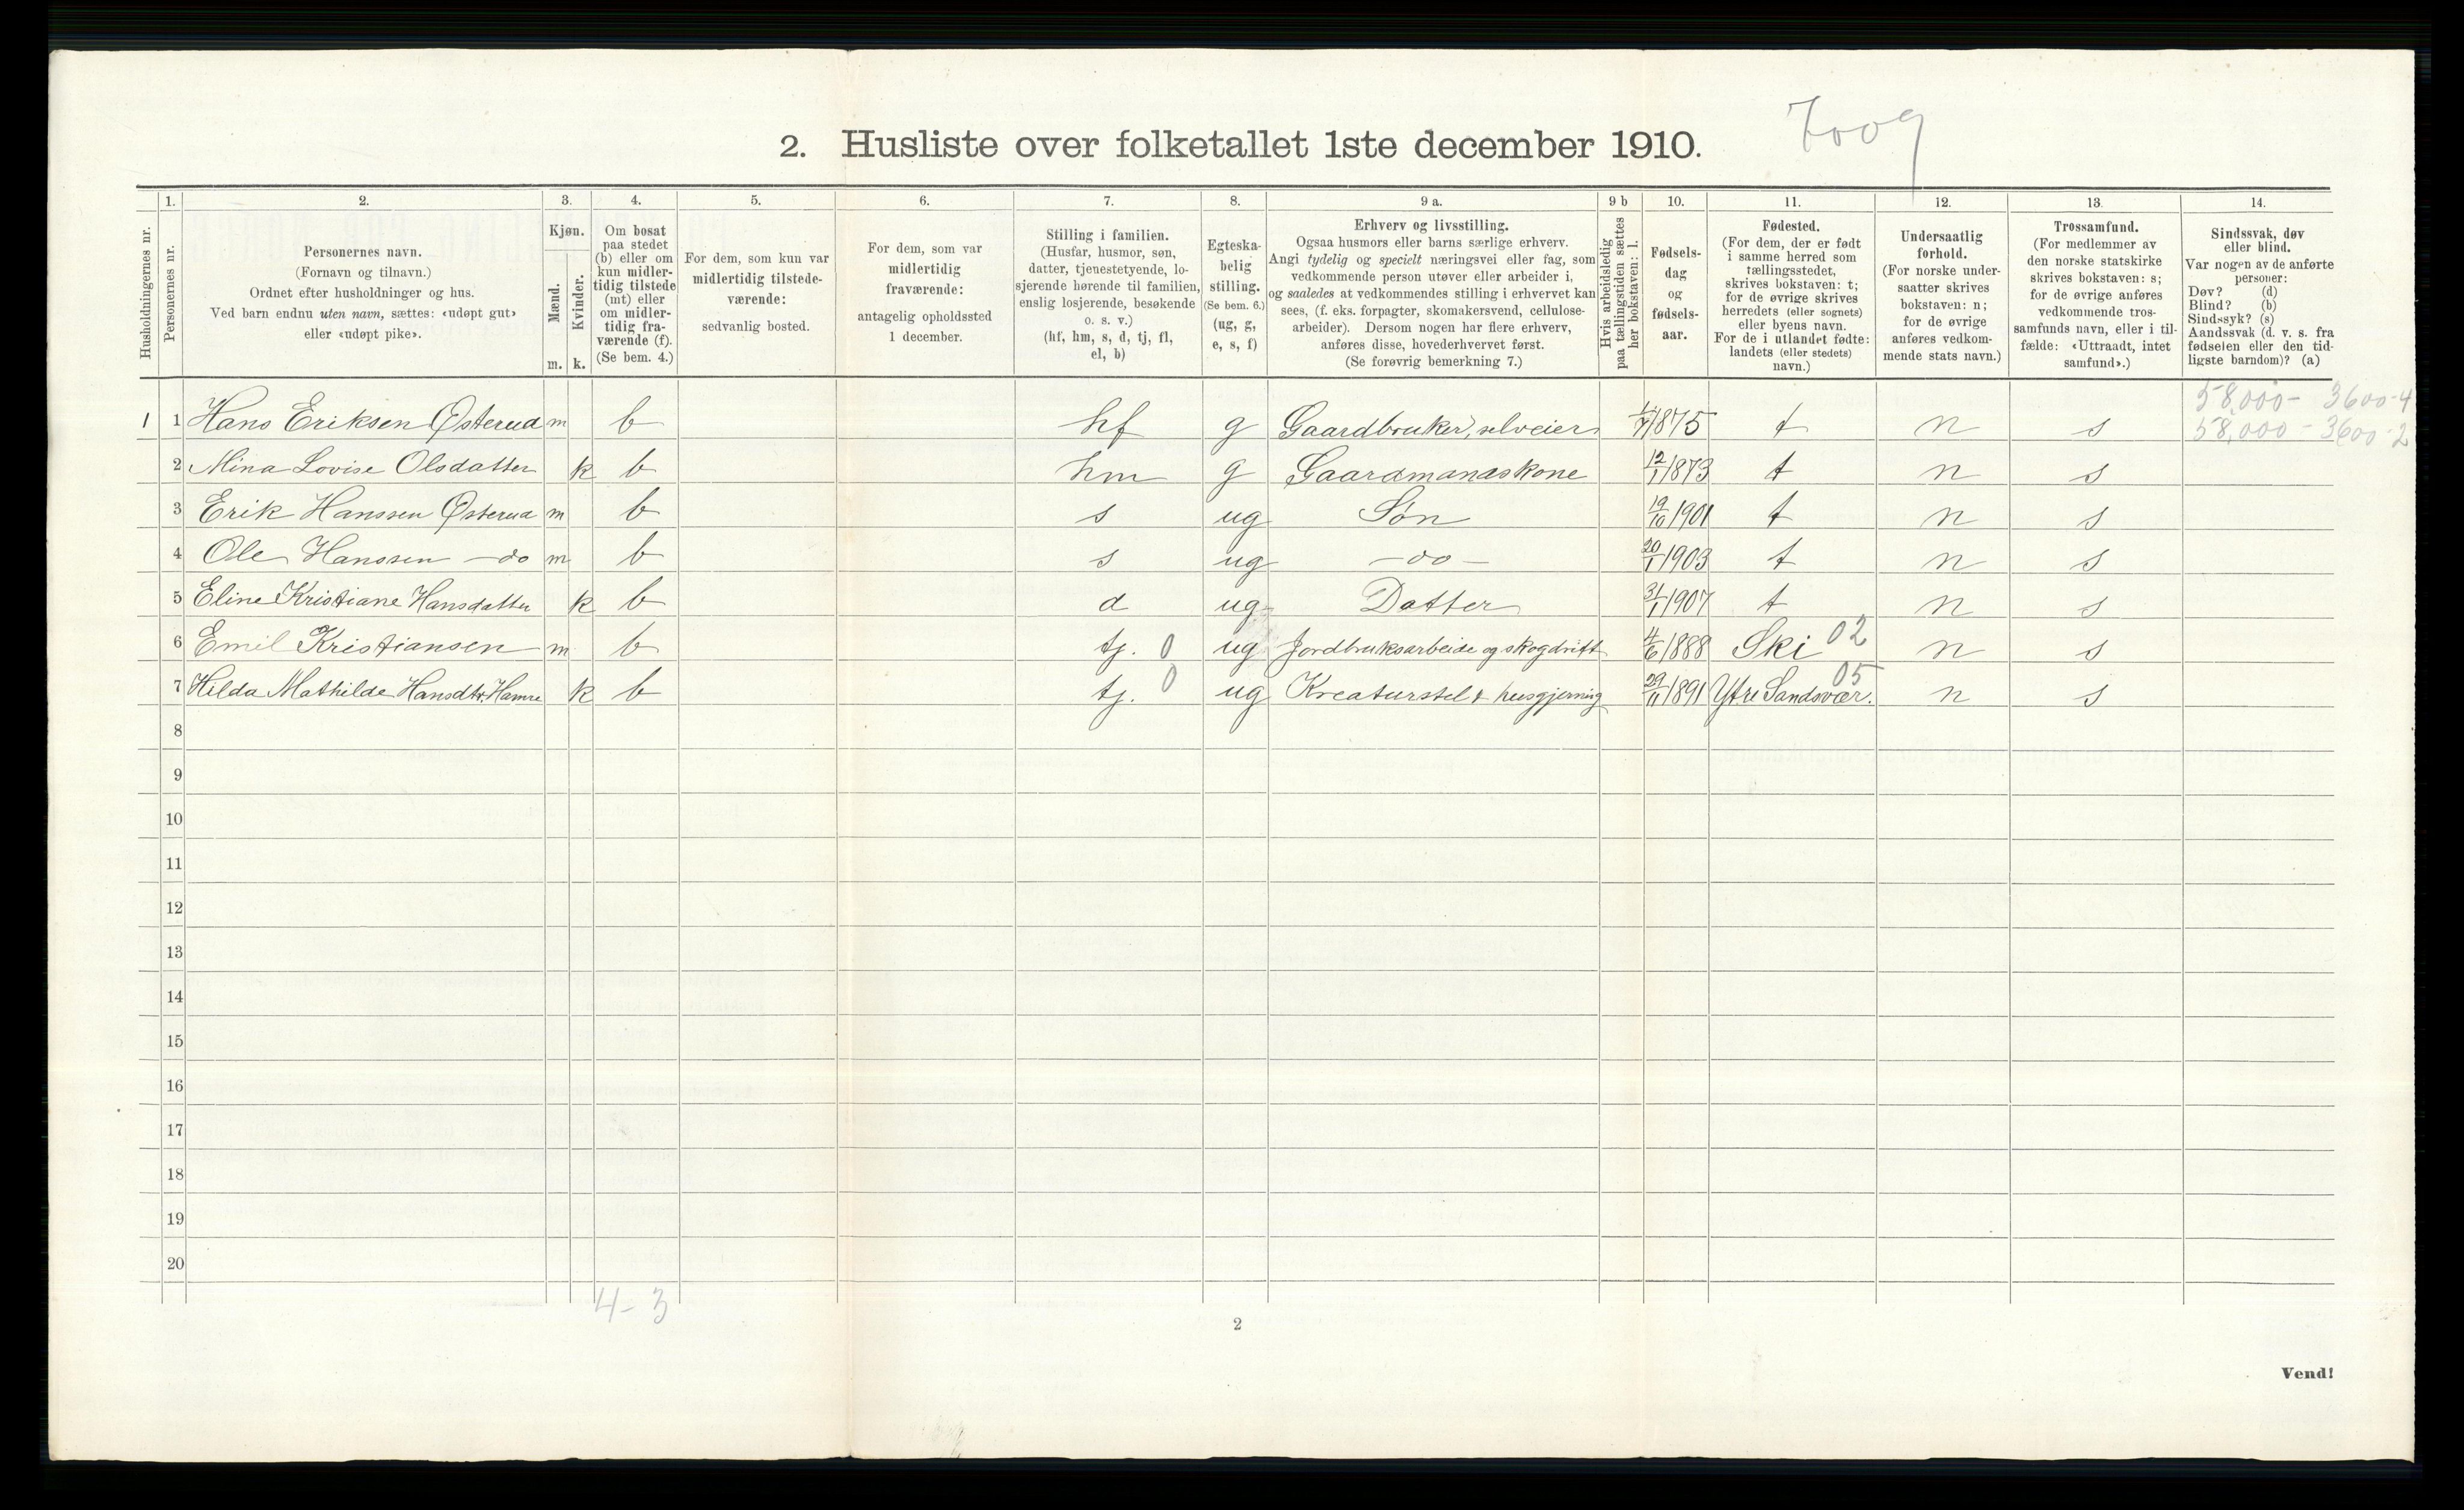 7009
2. Husliste over folketallet 1ste december 1910.
Husholdningernes nr.
1.
Personernes nr.
2.
Personernes navn.
(Fornavn og tilnavn.)
Ordnet efter husholdninger og hus.
Ved barn endnu uten navn, sættes: «udøpt gut»
eller «udøpt pike».
3.
Kjøn.
Mænd.
m.
Kvinder.
k.
4.
Om bosat
paa stedet
(b) eller om
kun midler-
tidig tilstede
(mt) eller
om midler-
tidig fra-
værende (f).
(Se bem. 4.)
5.
For dem, som kun var
midlertidig tilstede-
værende:
sedvanlig bosted.
6.
For dem, som var
midlertidig
fraværende:
antagelig opholdssted
1 december.
7.
Stilling i familien.
(Husfar, husmor, søn,
datter, tjenestetyende, lo-
sjerende hørende til familien,
enslig losjerende, besøkende
o. s. v.)
(hf, hm, s, d, tj, fl,
el, b)
8.
Egteska-
belig
stilling.
(Se bem. 6.)
(ug, g,
e, s, f)
9 a.
Erhverv og livsstilling.
Ogsaa husmors eller barns særlige erhverv.
Angi tydelig og specielt næringsvei eller fag, som
vedkommende person utøver eller arbeider i,
og saaledes at vedkommendes stilling i erhvervet kan
sees, (f. eks. forpagter, skomakersvend, cellulose-
arbeider). Dersom nogen har flere erhverv,
anføres disse, hovederhvervet først.
(Se forøvrig bemerkning 7.)
9 b
Hvis arbeidsledig
paa tællingstiden sættes
her bokstaven: l.
10.
Fødsels-
dag
og
fødsels-
aar.
11.
Fødested.
(For dem, der er født
i samme herred som
tællingsstedet,
skrives bokstaven: t;
for de øvrige skrives
herredets (eller sognets)
eller byens navn.
For de i utlandet fødte:
landets (eller stedets)
navn.)
12.
Undersaatlig
forhold.
(For norske under-
saatter skrives
bokstaven: n;
for de øvrige
anføres vedkom-
mende stats navn.)
13.
Trossamfund.
(For medlemmer av
den norske statskirke
skrives bokstaven: s;
for de øvrige anføres
vedkommende tros-
samfunds navn, eller i til-
fælde: «Uttraadt, intet
samfund».)
14.
Sindssvak, døv
eller blind.
Var nogen av de anførte
personer:
Døv? (d)
Blind? (b)
Sindssyk? (s)
Aandssvak (d. v. s. fra
fødselen eller den tid-
ligste barndom)? (a)
58,000- 3600-4
1 1 Hans Eriksen Østerud m b hf g Gaardbruker, selveier 1875 t n s 58,000-3600-2
2 Mina Lovise Olsdatter k b hm g Gaardmandskone 12/1 1873 t n s
3 Erik Hanssen Østerud m b s ug Søn 19/10 1901 t n s
4 Ole Hanssen -do m b s ug -do- 20/1 1903 t n s
5 Eline Kristiane Hansdatter k b d ug Datter 31/1 1907 t n s
6 Emil Kristiansen m b tj. 0 ug Jordbruksarbeide og skogdrift 4/6 1888 Ski 02 n s
7 Hilda Mathilde Hansdtr. Hamre k b tj. 0 ug Kreaturstel & husgjerning 29/11 1891 Ytre Sandsvær. 05 n s
8
9
10
11
12
13
14
15
16
17
18
19
20
4-3
2
Vend!